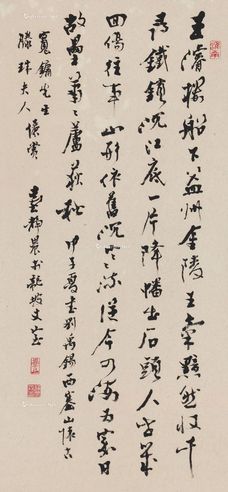 王濬樓船下益州金陵王氣黯然收千
尋鐵鎖沉江底一片降幡出石頭人世幾
回傷往事山形依舊枕寒流從今四海為家日
故壘蕭〻蘆荻秋 甲子夏書劉禹錫西塞山懷古
鏞先生
珠夫人 賞
靜農於龍坡丈室